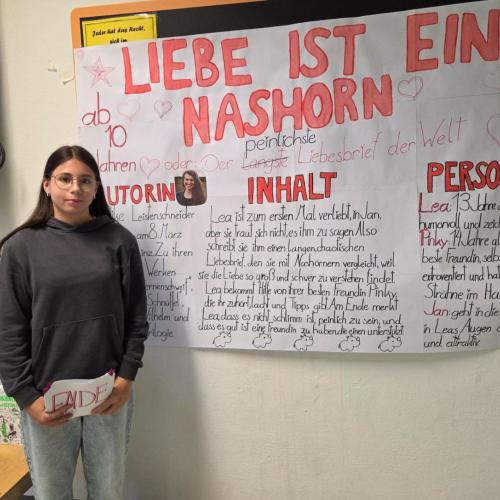 Jeder hat das Recht,
sich im
LIEBE IST EIN
NASHORN
ab
10
peinlichste
Jahren oder: Der Längste Liebesbrief der Welt
AUTORIN
Leistenschneider
am 8. März
Zu ihren
Werken
INHALT
Lea ist zum ersten Mal verliebt, in Jan,
aber sie traut sich nicht, es ihm zu sagen. Also
schreibt sie ihm einen langen, chaotischen
Liebesbrief, den sie mit Nashörnern vergleicht, weil
sie die Liebe so groß und schwer zu verstehen findet.
Lea bekommt Hilfe von ihrer besten Freundin Pinky,
die ihr zuhört, lacht und Tipps gibt. Am Ende merkt
Lea, dass es nicht schlimm ist, peinlich zu sein, und
dass es gut ist eine Freundin zu haben, die einen unterstützt.
PERSO
Lea: 13 Jahre
humorvoll und
Pinky: 14 Jahre
beste Freundin,
extrovertiert und hat
Strähne im
Jan: geht in die
in Leas Augen
und attraktiv
ENDE